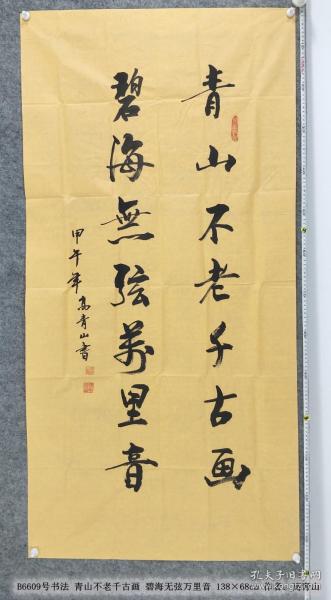 青山不老千古画
碧海無弦萬里音
甲午年高青山書
B6609号书法 青山不老千古画 碧海无弦万里音 138×68cm 作者：高青山
孔夫子旧书网